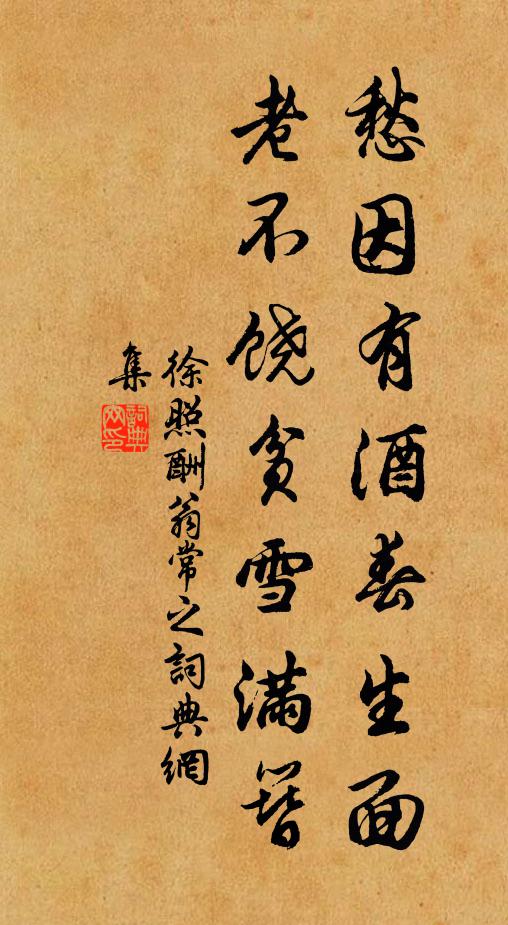 愁因有酒春生面
老不饶贫雪满簪
徐照酬翁常之詞典網
集
詞典網印